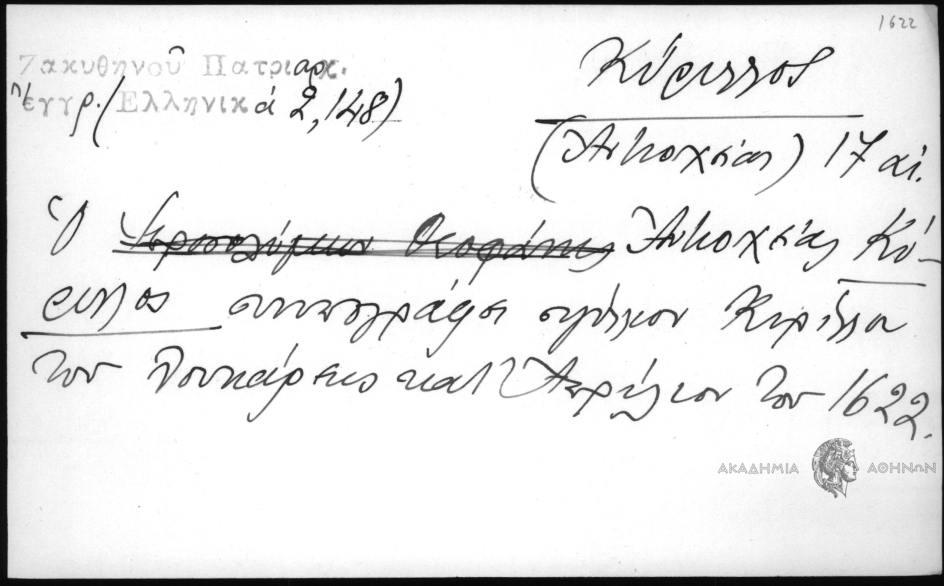 1622
Ζακυθηνοῦ Πατριαρχ.
ἔγγρ. (Ἑλληνικά 2, 148)
Κύριλλος
(Ἀντιοχείας) 17 αἰ.
Ὁ Ἱεροσολύμων Θεοφάνης Ἀντιοχείας Κύ-
ριλλος συνυπογράφει σιγίλλιον Κυρίλλου
του Λουκάρεως κατ' Ἀπρίλιον του 1622.
ΑΚΑΔΗΜΙΑ ΑΘΗΝΩΝ